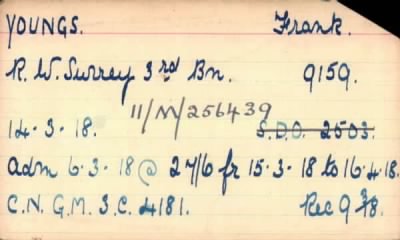 YOUNGS. Frank.
R. W. Surrey 3rd Bn. 9159.
11/M/256439
14.3.18. S.D.O. 2503.
adm 6.3.18 @ 27/6 fr 15.3.18 to 16.4.18.
C.N.G.M. S.C. 4181. Rec 9